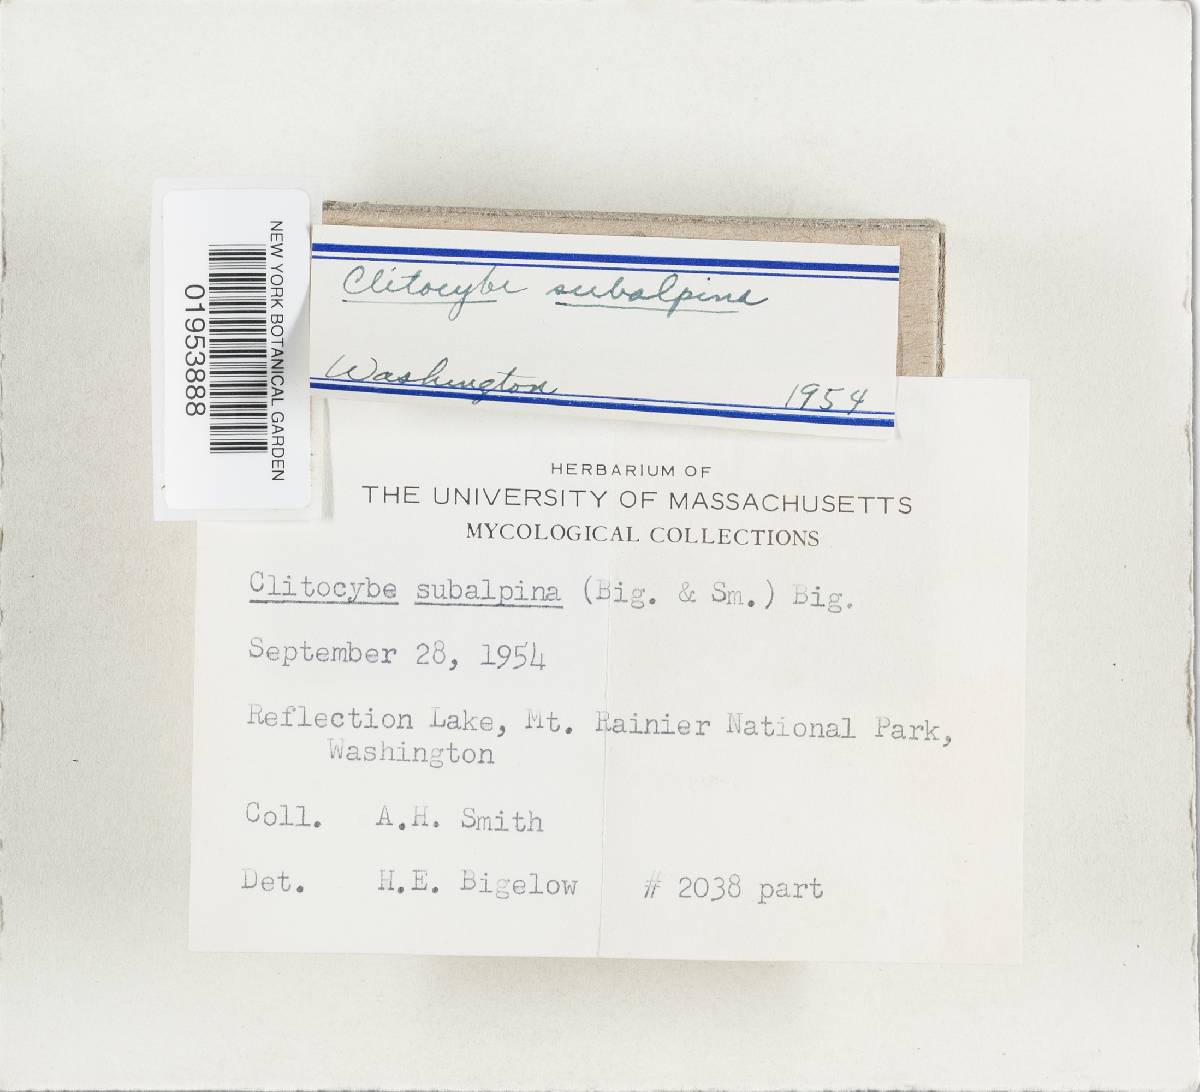 NEW YORK BOTANICAL GARDEN
01953888
Clitocybe subalpina
Washington 1954
HERBARIUM OF
THE UNIVERSITY OF MASSACHUSETTS
MYCOLOGICAL COLLECTIONS
Clitocybe subalpina (Big. & Sm.) Big.
September 28, 1954
Reflection Lake, Mt. Rainier National Park,
Washington
Coll. A.H. Smith
Det. H.E. Bigelow # 2038 part